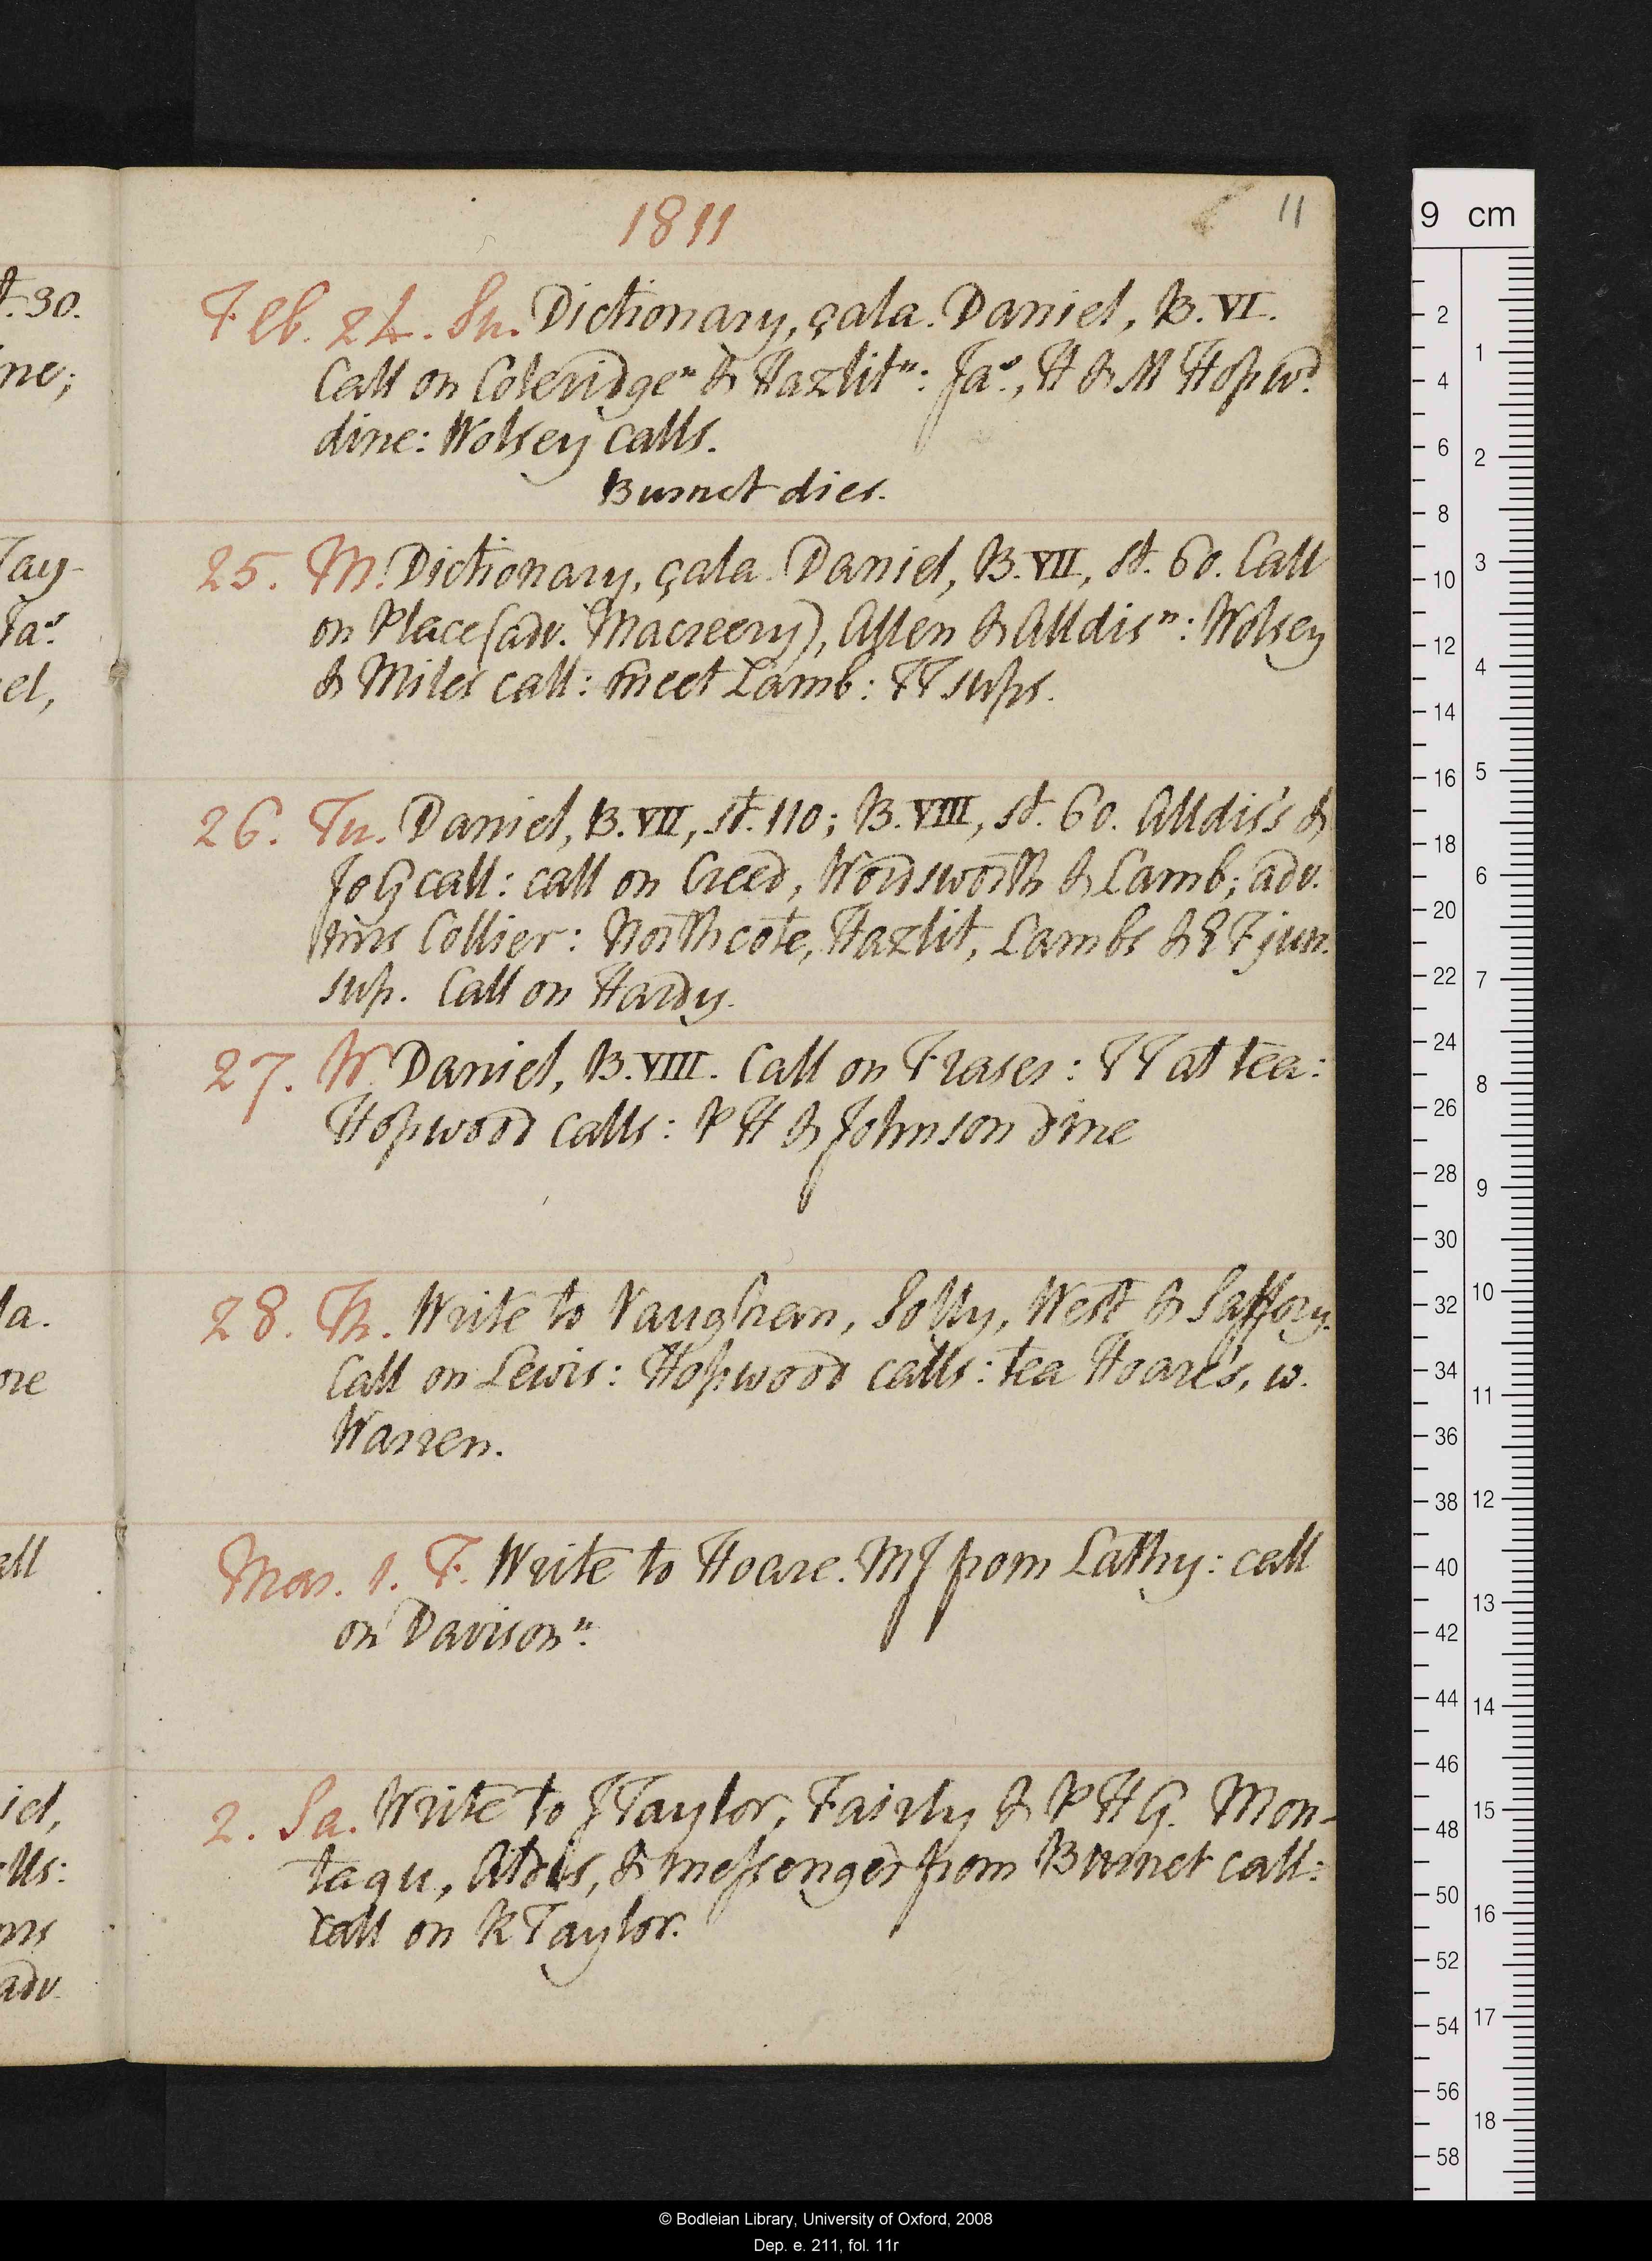 1811
11
Feb. 24. Su. Dictionary, çala. Daniel, B. VI.
Call on Coleridge n & Hazlit n: Jas., H & M Hopwd.
dine: Wolsey calls.
Burnet dies.
25. M. Dictionary, çala. Daniel, B. VII, st. 60. Call
on Place (adv. Macreery), Allen & Alldis n: Wolsey
& Miles call: meet Lamb: TT sups.
26. Tu. Daniel, B. VII, st. 110; B. VIII, st. 60. Alldis's &
Jo G call: call on Creed, Wordsworth & Lamb; adv.
Collier: Northcote, Hazlit, Lambs & E F jun.
sup. Call on Hardy.
27. W. Daniel, B. VIII. Call on Fraser: TT at tea:
Hopwood calls: P H & Johnson dine
28. Th. Write to Vaughan, Solly, West & Saffory.
Call on Lewis: Hopwood calls: tea Hoare's, w.
Warren.
Mar. 1. F. Write to Hoare. MJ from Lathy: call
on Davison n.
2. Sa. Write to J Taylor, Fairly & P H G. Mon-
tagu, & messenger from Burnet call:
call on R Taylor.
t. 30.
ne;
Tay-
Jas.
el,
la.
ore
all
iel,
lls:
ms
adv.
9 cm
2
4
6
8
10
12
14
16
18
20
22
24
26
28
30
32
34
36
38
40
42
44
46
48
50
52
54
56
58
1
2
3
4
5
6
7
8
9
10
11
12
13
14
15
16
17
18
© Bodleian Library, University of Oxford, 2008
Dep. e. 211, fol. 11r